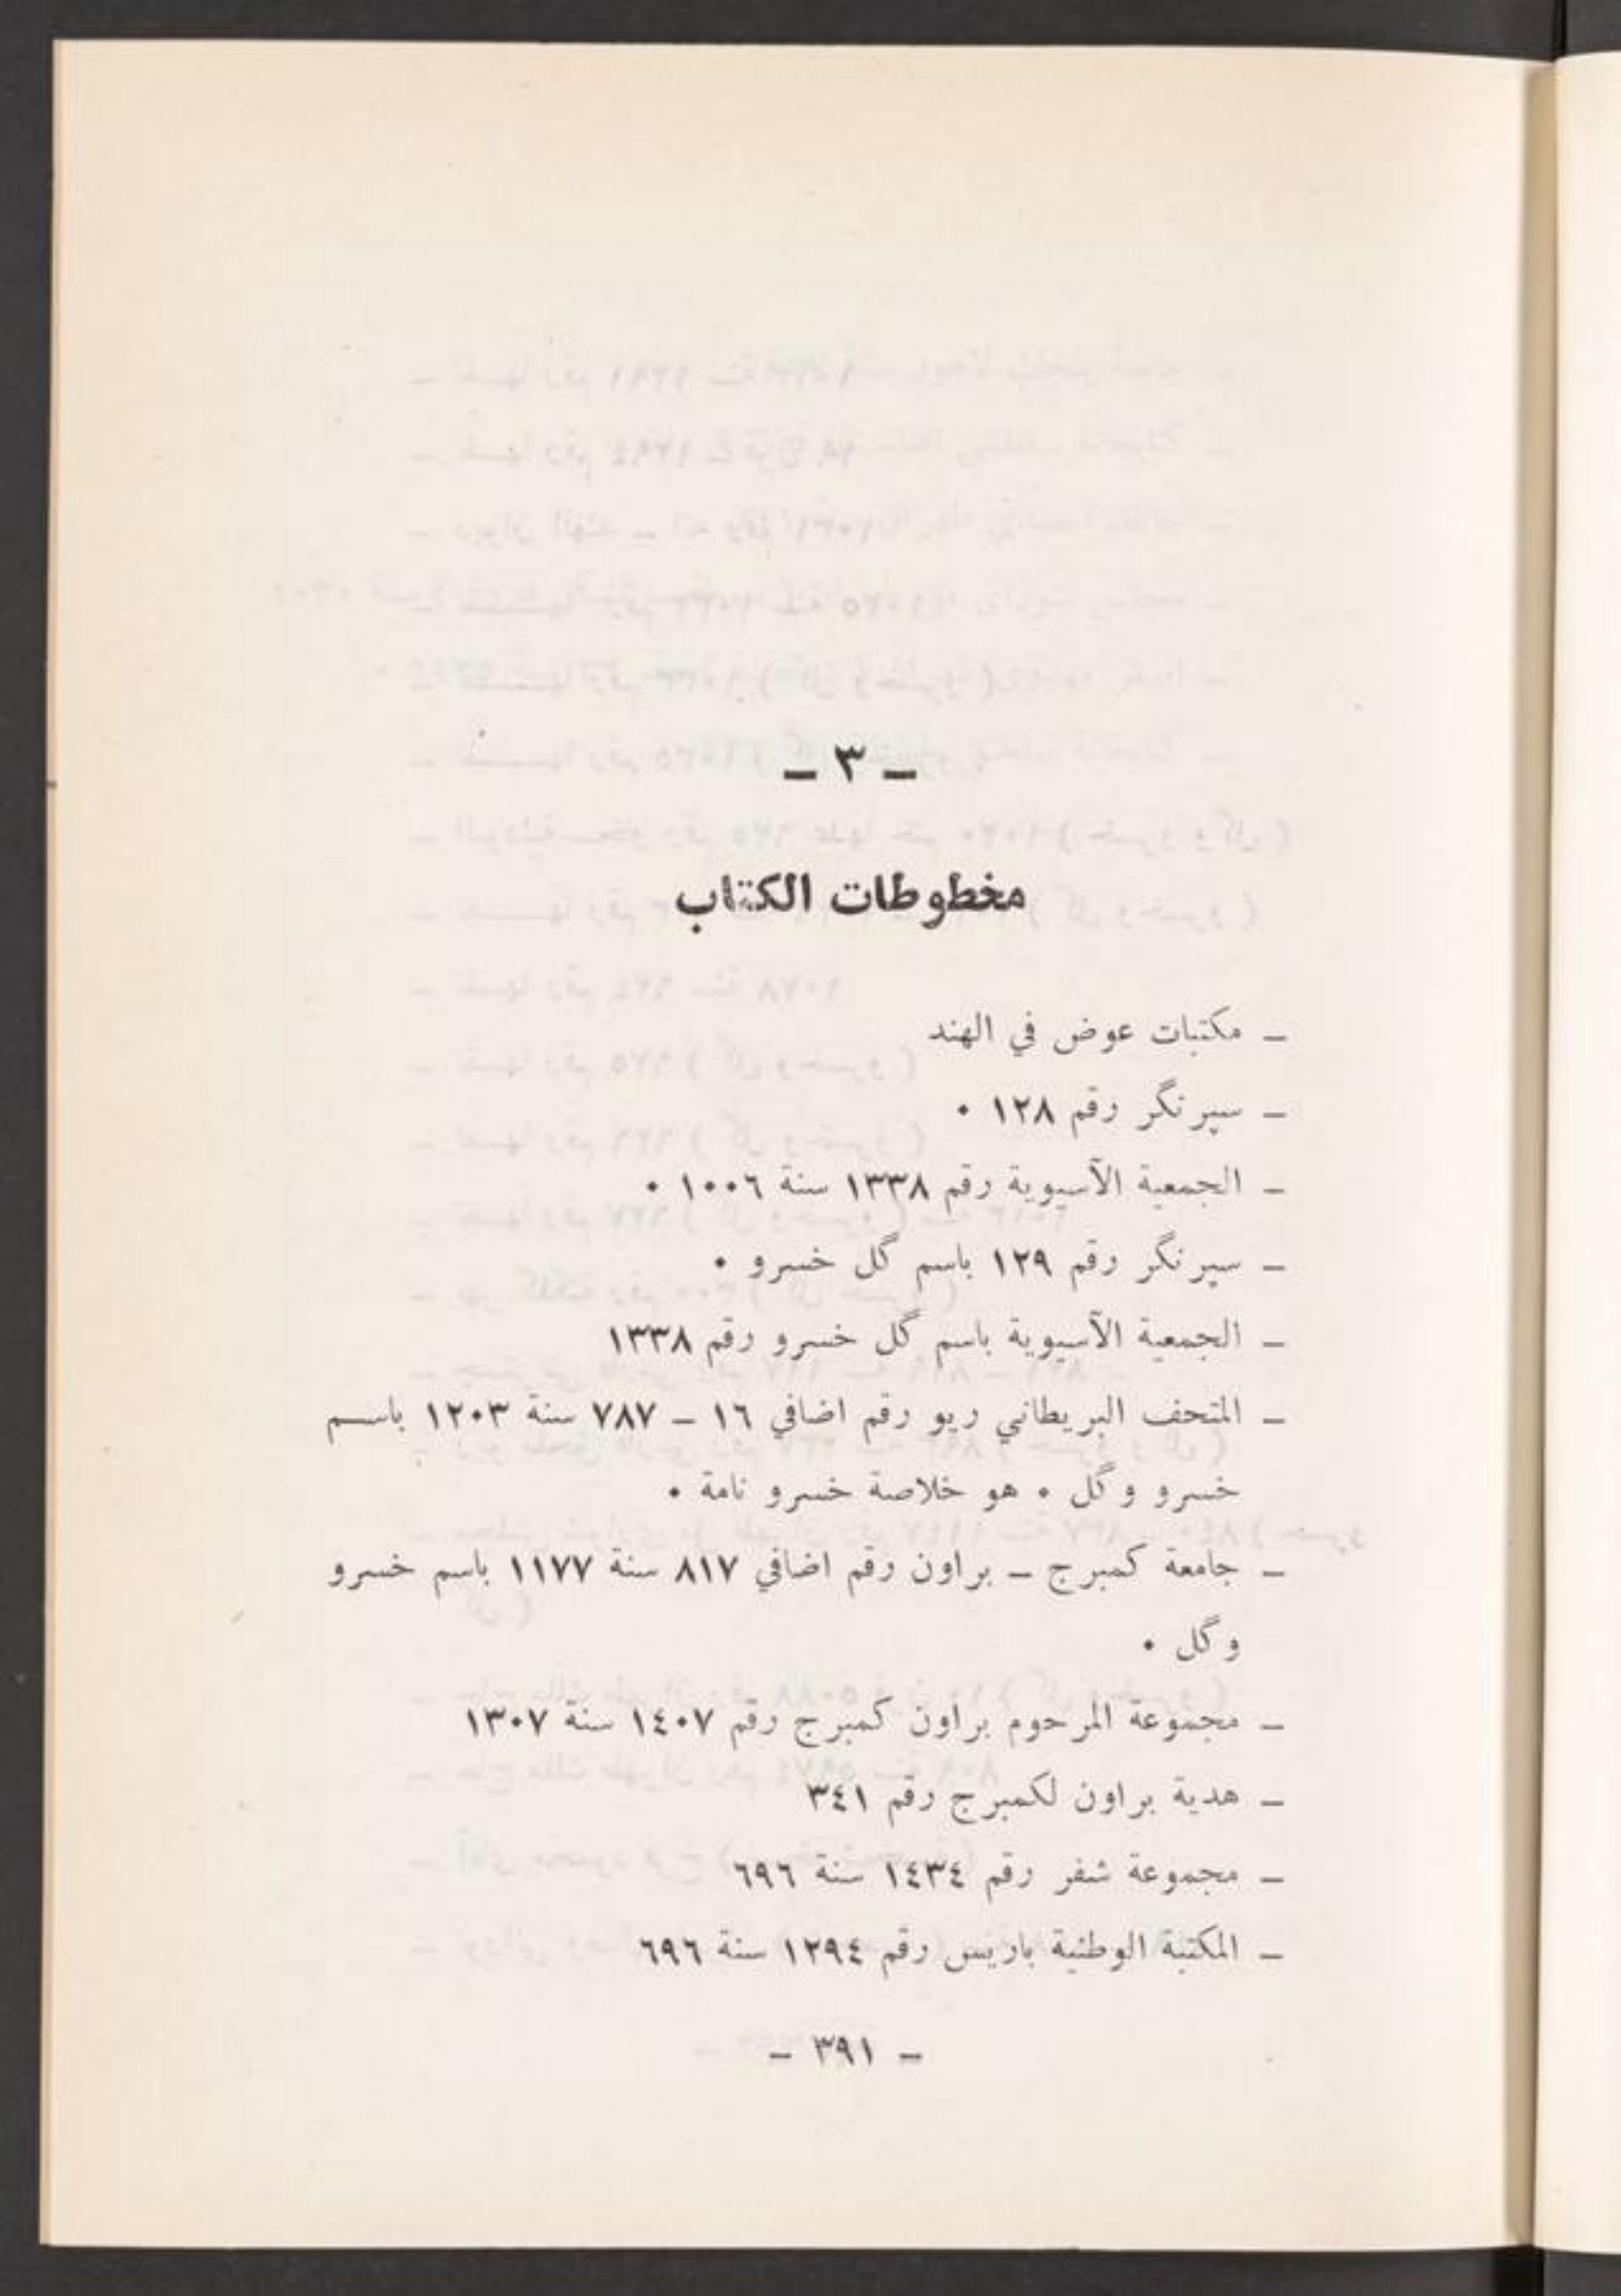 - ٣ -
مخطوطات الكتاب
- مكتبات عوض في الهند
- سپرنگر رقم ١٢٨ ٠
- الجمعية الآسيوية رقم ١٣٣٨ سنة ١٠٠٦ ٠
- سپرنگر رقم ١٢٩ باسم گل خسرو ٠
- الجمعية الآسيوية باسم گل خسرو رقم ١٣٣٨
- المتحف البريطاني ريو رقم اضافي ١٦ - ٧٨٧ سنة ١٢٠٣ باسم
خسرو وگل ٠ هو خلاصة خسرو نامة ٠
- جامعة كمبرج - براون رقم اضافي ٨١٧ سنة ١١٧٧ باسم خسرو
وگل ٠
- مجموعة المرحوم براون كمبرج رقم ١٤٠٧ سنة ١٣٠٧
- هدية براون لكمبرج رقم ٣٤١
- مجموعة شفر رقم ١٤٣٤ سنة ٦٩٦
- المكتبة الوطنية باريس رقم ١٢٩٤ سنة ٦٩٦
- ٣٩١ -